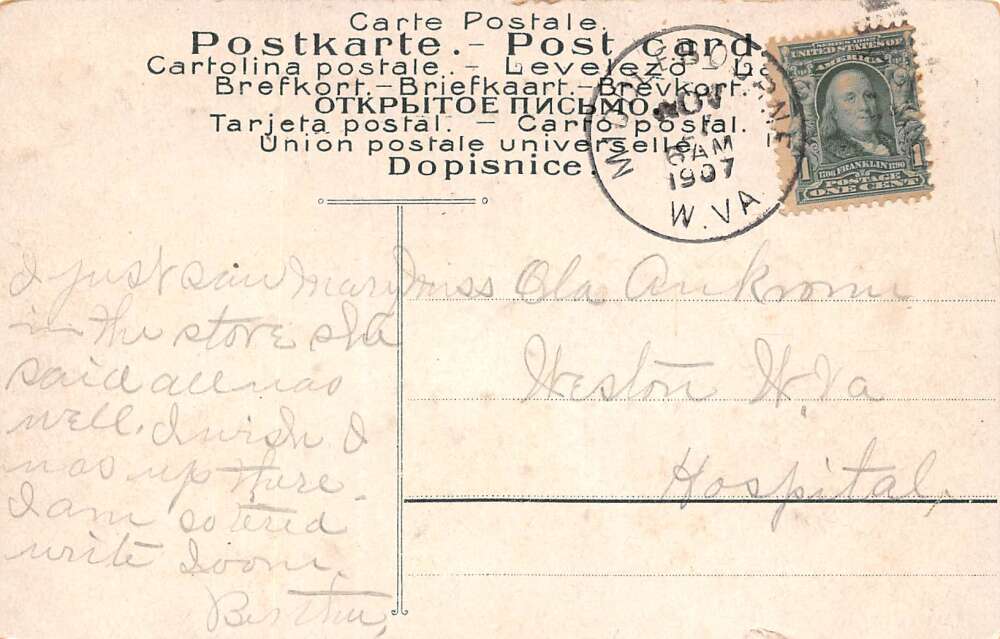 Carte Postale.
Postkarte. – Post card.
Cartolina postale. – Levelezo – La
Brefkort. – Briefkaart. – Brevkort.
ОТКРЫТОЕ ПИСЬМО.
Tarjeta postal. – Carto postal.
Union postale universelle.
Dopisnice.
MIDDLEBOURNE
NOV
AM
1907
W. VA
SERIES 1902
UNITED STATES OF
AMERICA
1706 FRANKLIN 1790
1 POSTAGE 1
ONE CENT
I just saw Mary
in the store she
said all was
well. I wish I
was up there.
I am so tered
write soon.
Bertha
Miss Ola Ankrom
Weston W. Va
Hospital,